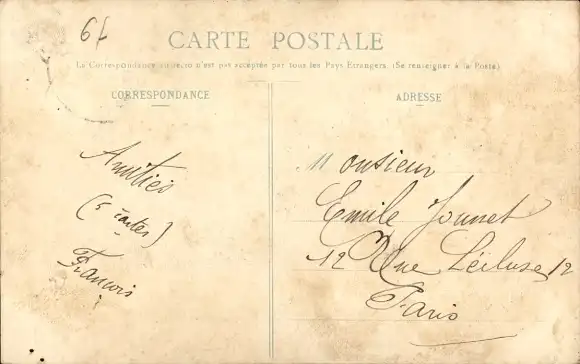 6f
CARTE POSTALE
La Correspondance au recto n'est pas acceptée par tous les Pays Etrangers. (Se renseigner à la Poste)
CORRESPONDANCE
ADRESSE
Amitiés
(5 cartes)
François
Monsieur
Emile Jounet
12 Rue Lécluse 12
Paris